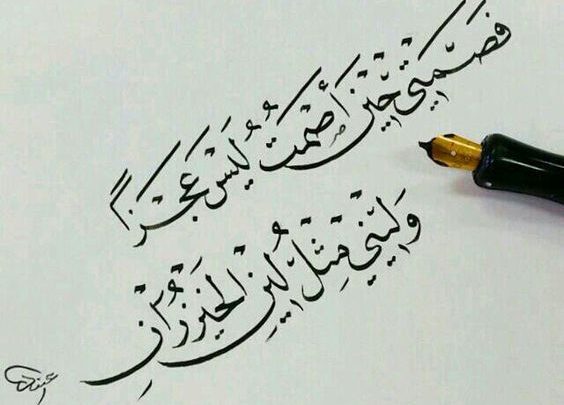 فَصَمْتِي حِيْنَ أَصْمُتُ لَيْسَ عَجْزًا
وَلِيْنِي مِثْلُ لِيْنِ الخَيْزُرَانِ